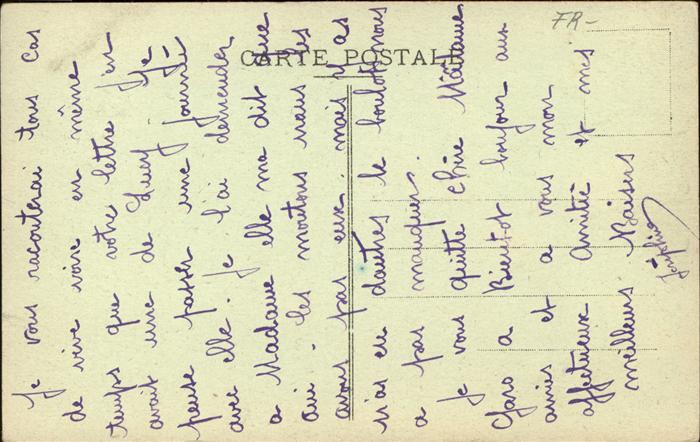 FR-
CARTE POSTALE
Je vous raconterai tous cas
de vive voix en même
temps que votre lettre j'en
avait une de Lucy. Je
pense passer une journée
avec elle. Je l'ai demander
a Madame elle ma dit que
oui. Les moutons nous les
avons pas eux. mais y as
n'as eu dautres le boulot nous
a pas manquer.
Je vous quitte Chère Madame
a Bientot bonjour aux
amies et a vous mon
affectueux Amitié et mes
meilleurs Baisers